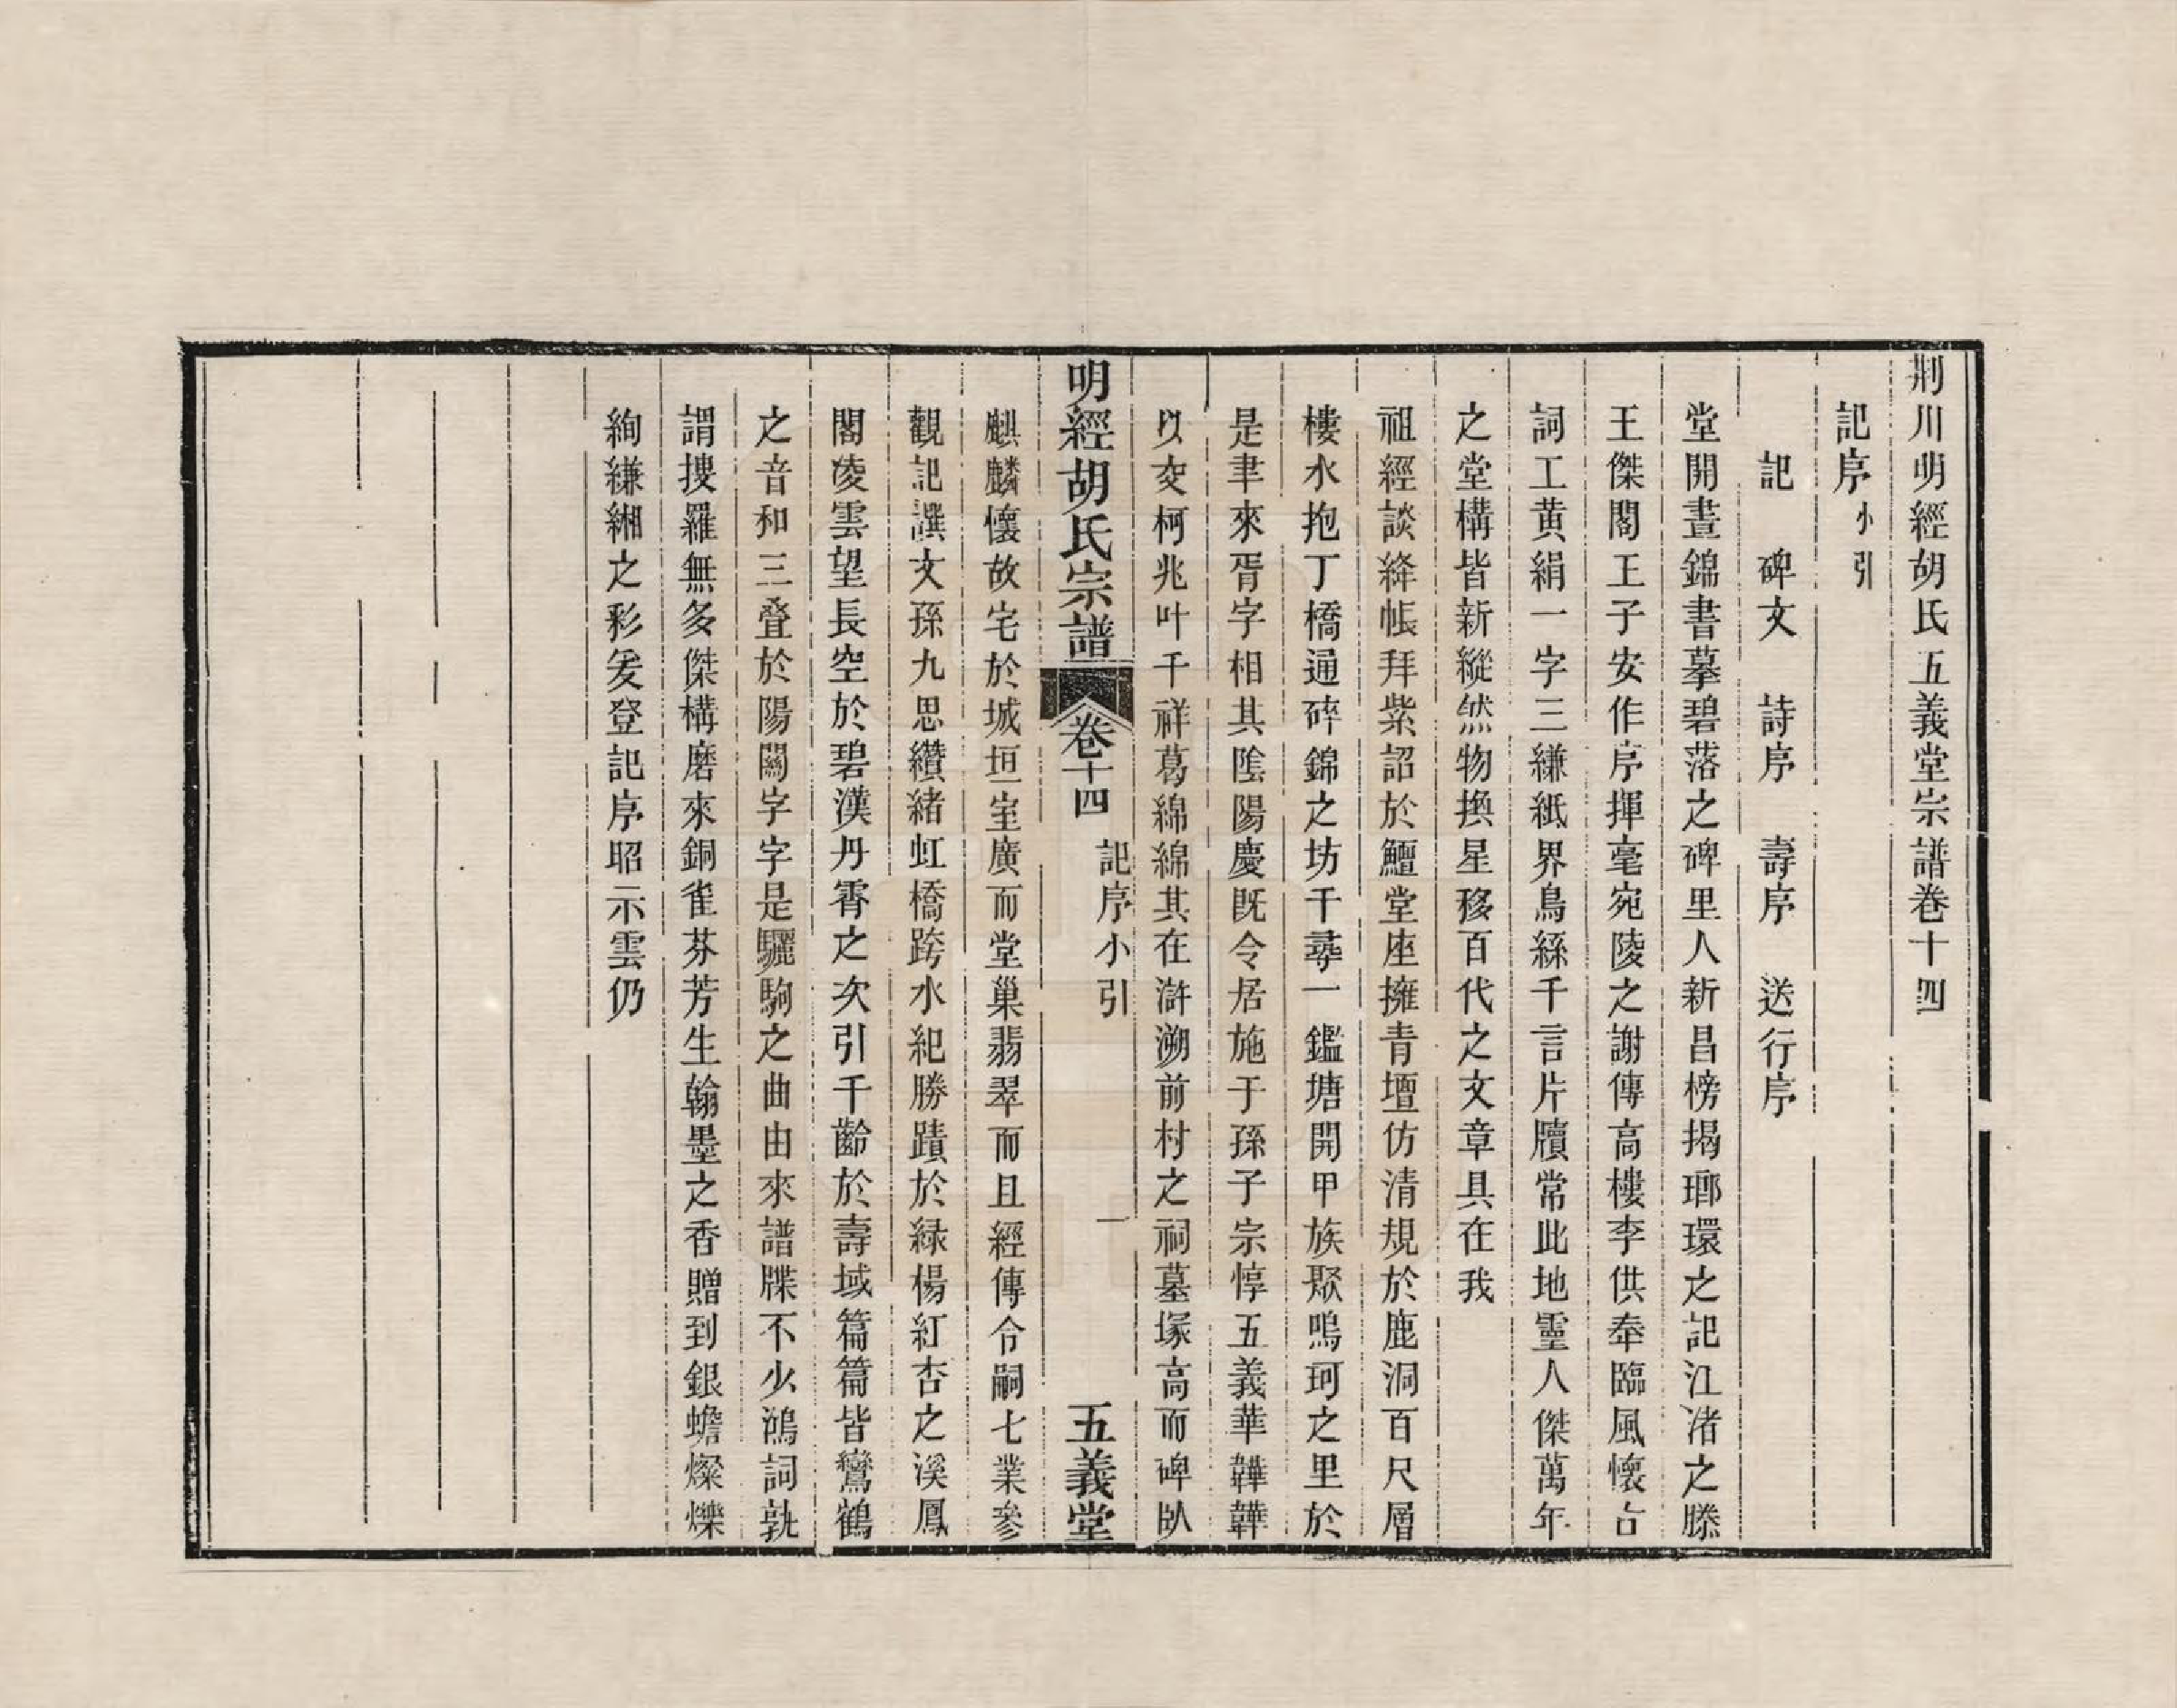 荆川明經胡氏五義堂宗譜卷十四
記序小引
記 碑文 詩序 壽序 送行序
堂開晝錦書摹碧落之碑里人新昌榜揭瑯環之記江渚之滕
王傑閣王子安作序揮毫宛陵之謝傳高樓李供奉臨風懷古
詞工黄絹一字三縑紙界烏絲千言片牘常此地靈人傑萬年
之堂構皆新縱然物換星移百代之文章具在我
祖經談絳帳拜紫詔於鱣堂座擁青壇仿清規於鹿洞百尺層
樓水抱丁橋通碎錦之坊千尋一鑑塘開甲族聚鳴珂之里於
是聿來胥字相其陰陽慶既令居施于孫子宗惇五義華韡韡
以交柯兆叶千祥葛綿綿其在滸溯前村之祠墓塚高而碑臥
明經胡氏宗譜 卷十四 記序小引 一 五義堂
麒麟懷故宅於城垣室廣而堂巢翡翠而且經傳令嗣七業參
觀記譔文孫九思纘緒虹橋跨水紀勝蹟於緑楊紅杏之溪鳳
閣凌雲望長空於碧漢丹霄之次引千齡於壽域篇篇皆鸞鶴
之音和三叠於陽關字字是驪駒之曲由來譜牒不少鴻詞孰
謂搜羅無多傑構磨來銅雀芬芳生翰墨之香贈到銀蟾燦爍
絢縑緗之彩爰登記序昭示雲仍